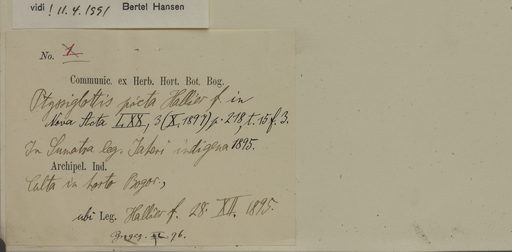 vidi ! 11.4.1991 Bertel Hansen
No. 1
Communic. ex Herb. Hort. Bot. Bog.
Ptyssiglottis picta Hallier f. in
Nova Acta LXX, 3 (X. 1897) p. 218, t. 15 f. 3.
In Sumatra leg. Jaheri indigena 1895.
Archipel. Ind.
Culta in horto Bogor.,
ubi Leg. Hallier f. 28. XII. 1895.
96.